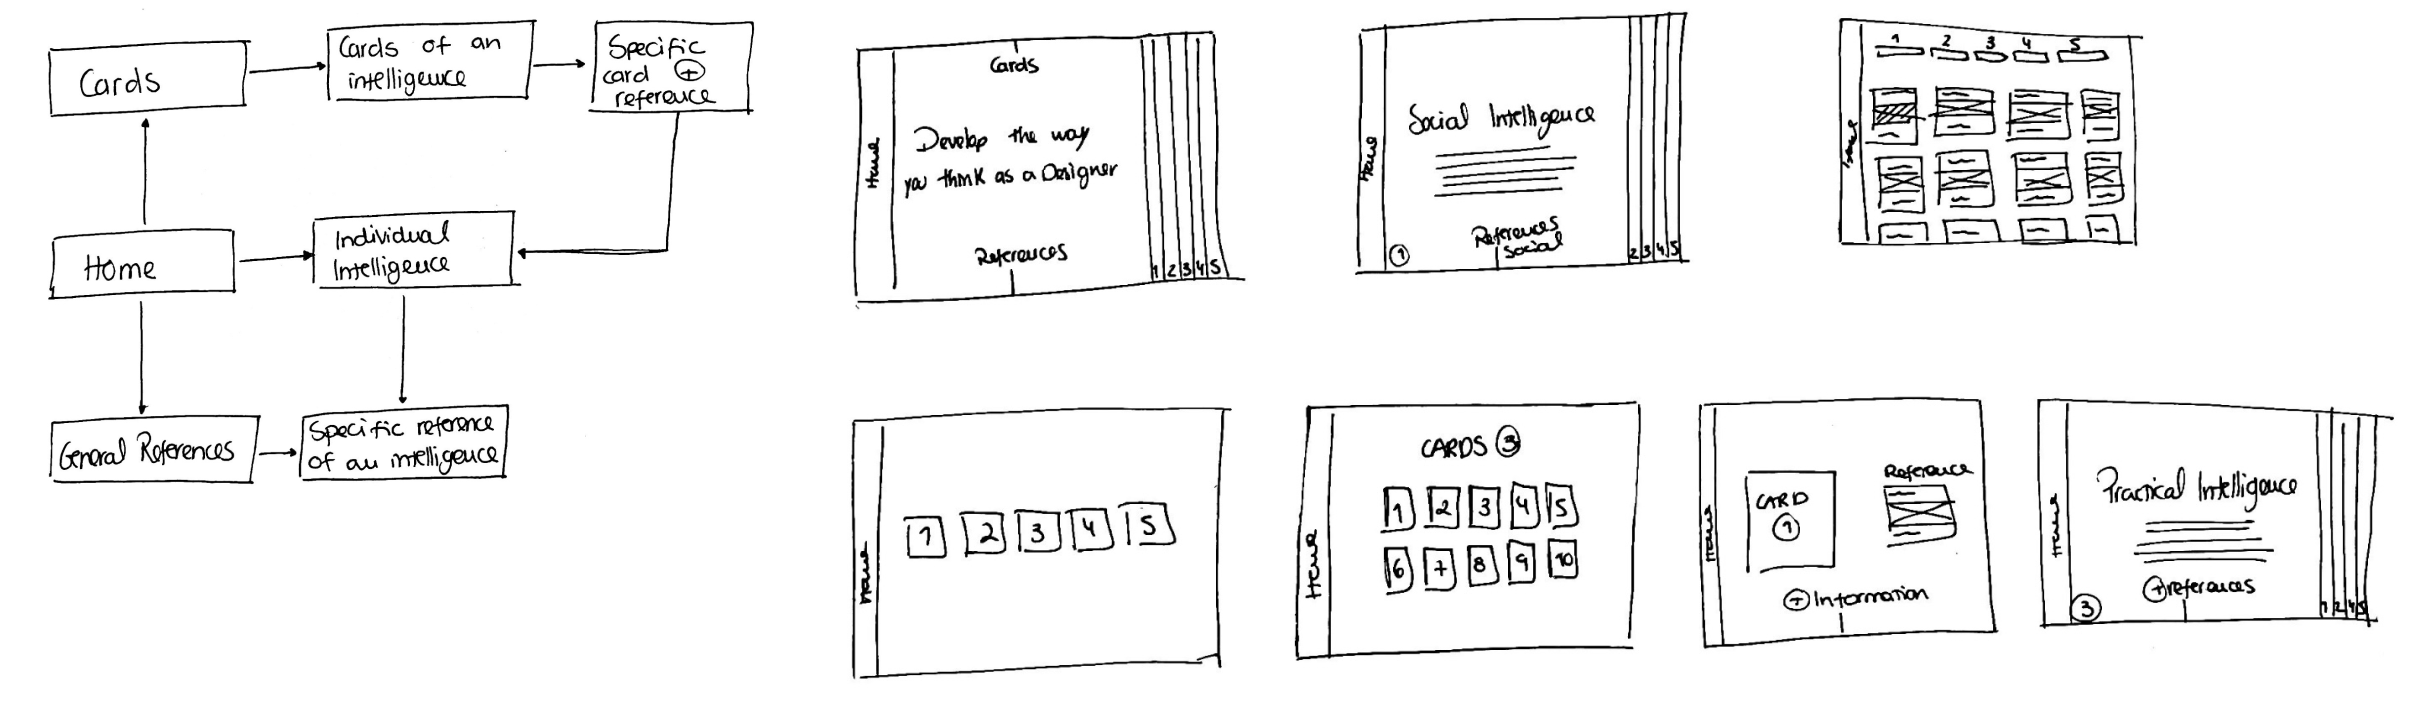 Cards
Cards of an
intelligence
Specific
card +
reference
Home
Individual
Intelligence
General References
Specific reference
of an intelligence
Home
Cards
Develop the way
you think as a Designer
References
1 2 3 4 5
Home
Social Intelligence
References
Social
1
2 3 4 5
Home
1 2 3 4 5
Home
1 2 3 4 5
Home
CARDS 3
1 2 3 4 5
6 7 8 9 10
Home
CARD
1
Reference
+ Information
Home
Practical Intelligence
+ references
3
1 2 4 5